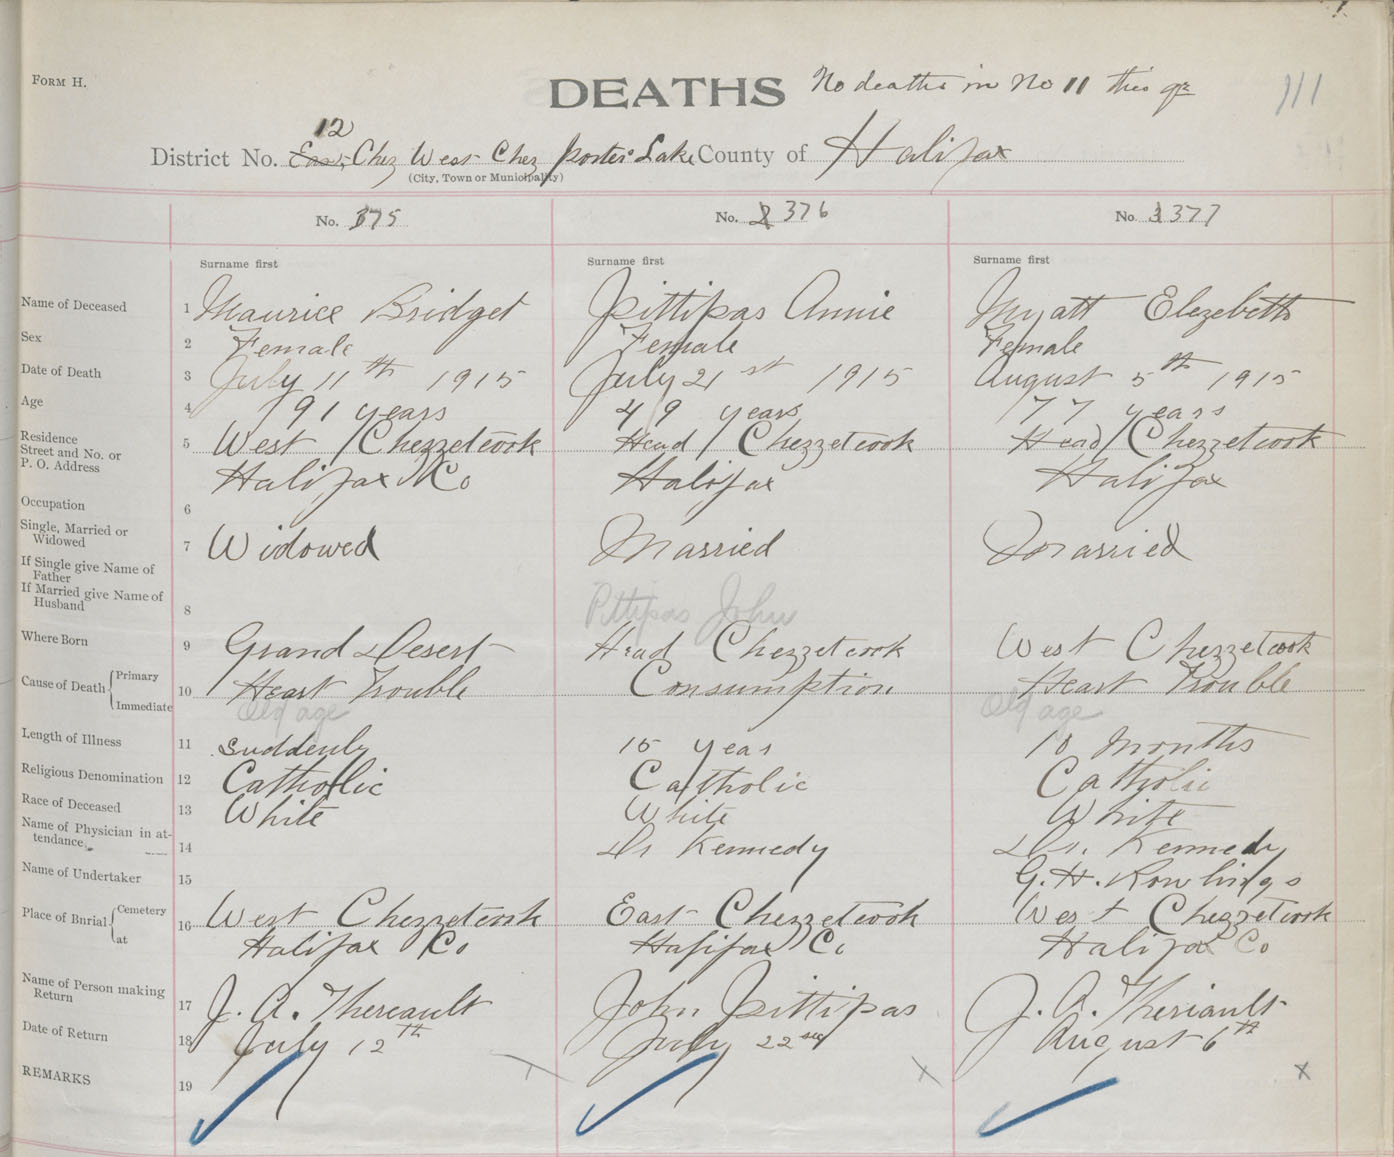 FORM H.
DEATHS No deaths in No 11 this qr 111
12
District No. East Chez West Chez Porters Lake County of Halifax
(City, Town or Municipality)
No. 375 No. 2 376 No. 3 377
Surname first Surname first Surname first
Name of Deceased 1 Maurice Bridget Pittipas Annie Myatt Elezebeth
Sex 2 Female Female Female
Date of Death 3 July 11th 1915 July 21st 1915 August 5th 1915
Age 4 91 years 49 years 77 years
Residence Street and No. or P. O. Address 5 West Chezzetcook Head Chezzetcook Head Chezzetcook
Halifax Co Halifax Halifax
Occupation 6
Single, Married or Widowed 7 Widowed Married Married
If Single give Name of Father
If Married give Name of Husband 8 Pittipas John
Where Born 9 Grand Desert Head Chezzetcook West Chezzetcook
Cause of Death Primary Immediate 10 Heart Trouble Consumption Heart Trouble
Old age Old age
Length of Illness 11 suddenly 15 year 10 months
Religious Denomination 12 Catholic Catholic Catholic
Race of Deceased 13 White White White
Name of Physician in attendance 14 Dr Kennedy Dr. Kennedy
Name of Undertaker 15 G. H. Rowlings
Place of Burial Cemetery at 16 West Chezzetcook East Chezzetcook West Chezzetcook
Halifax Co Halifax Co Halifax Co
Name of Person making Return 17 J. A. Thereault John Pittipas J. A. Theriault
Date of Return 18 July 12th July 22nd August 6th
REMARKS 19 x x